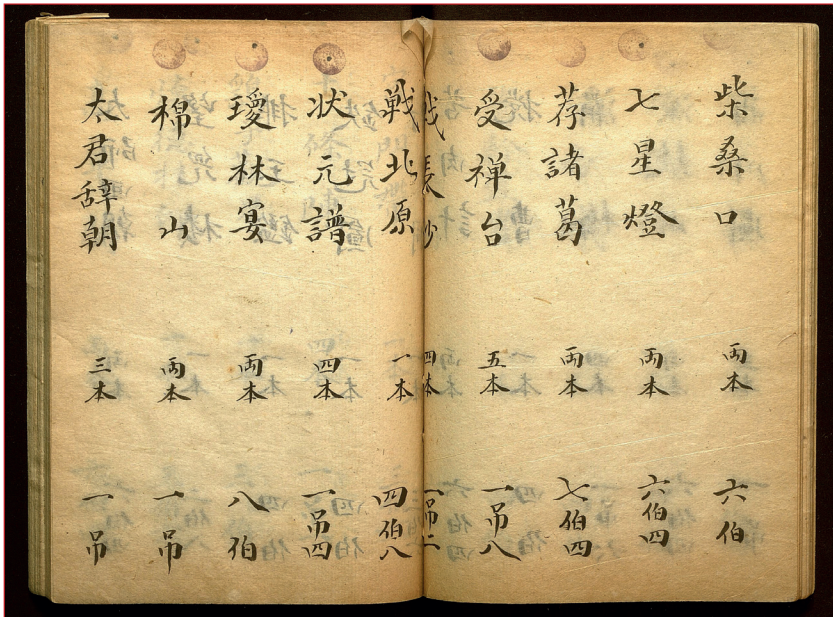 柴桑口 兩本 六伯
七星燈 兩本 六伯四
荐諸葛 兩本 七伯四
受禅台 五本 一吊八
戰長沙 四本 一吊二
戰北原 一本 四伯八
状元譜 四本 一吊四
瓊林宴 兩本 八伯
棉山 兩本 一吊
太君辞朝 三本 一吊